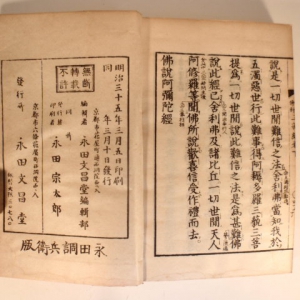 說一切世間難信之法舍利弗當知我於
五濁惡世行此難事得阿耨多羅三藐三菩
提爲一切世間說此難信之法是爲甚難佛
說此經已舍利弗及諸比丘一切世間天人
阿修羅等聞佛所說歡喜信受作禮而去
佛說阿彌陀經
明治三十五年三月五日印刷
同 年三月十日發行
無斷
轉載
不許
編輯者 永田文昌堂編輯部
印刷者 永田宗太郎
發行所 永田文昌堂
永田調兵衛版